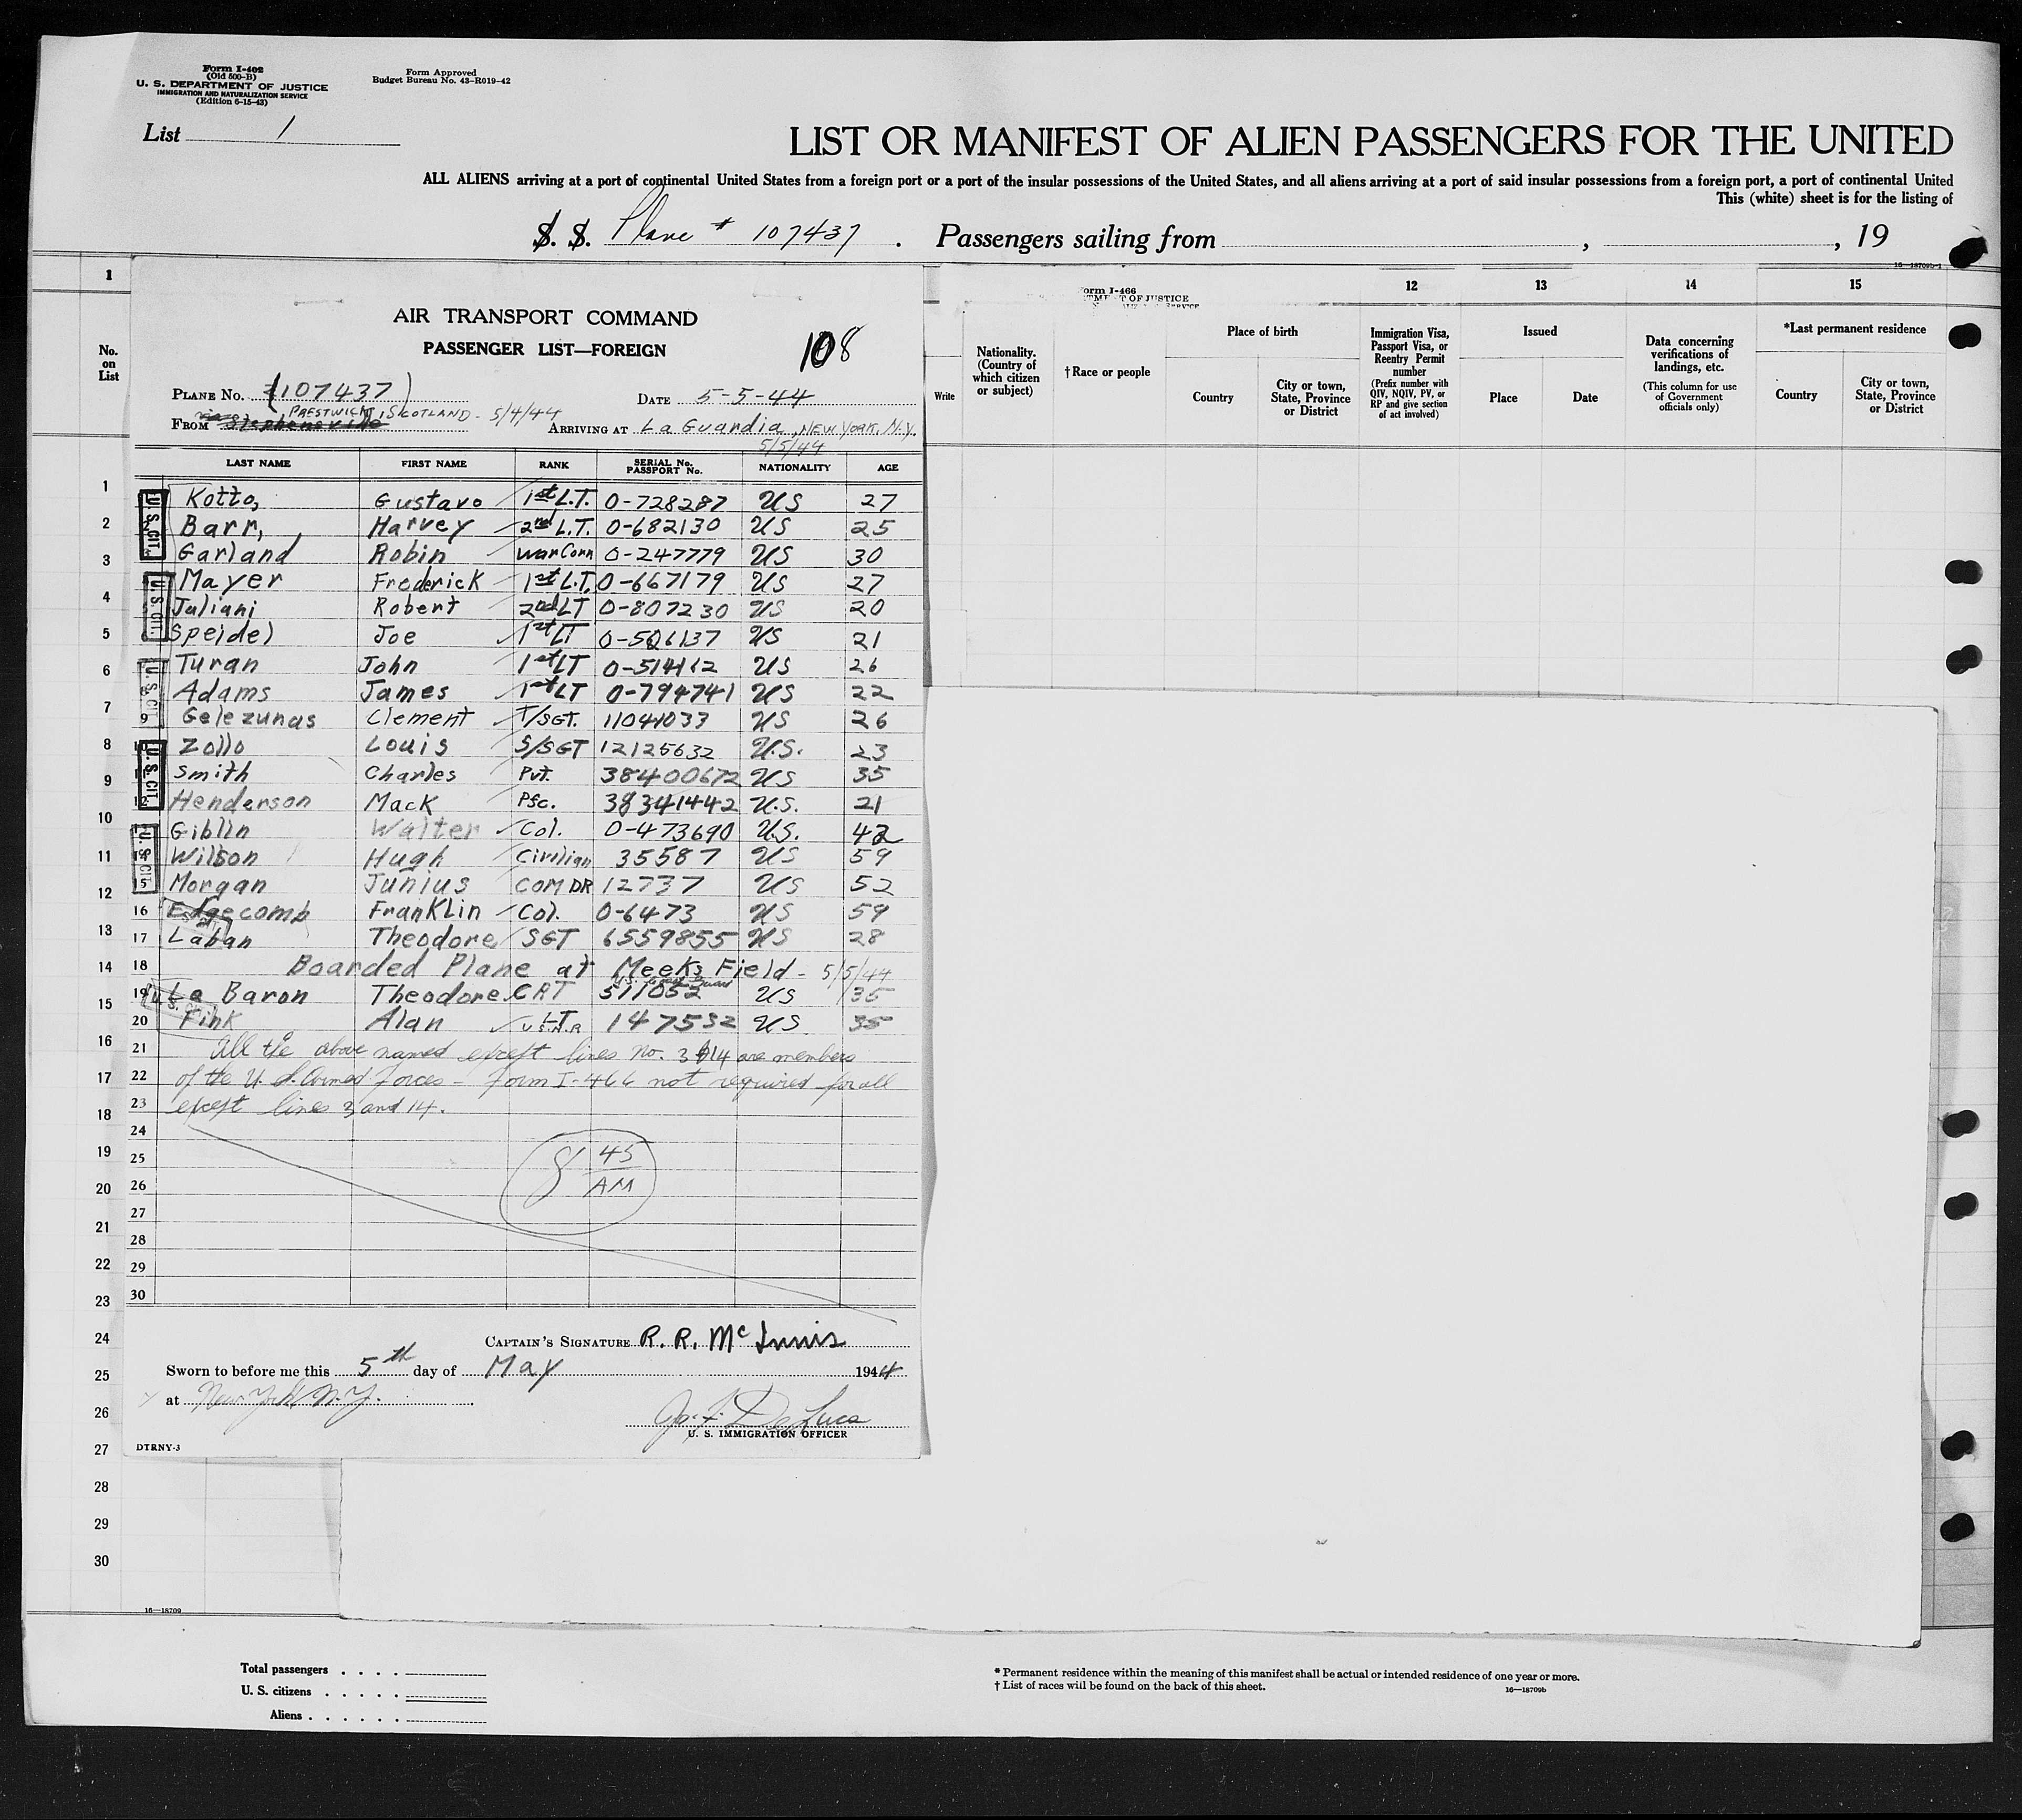 Form I-402
(Old 500-B)
U. S. DEPARTMENT OF JUSTICE
IMMIGRATION AND NATURALIZATION SERVICE
(Edition 6-15-43)
Form Approved
Budget Bureau No. 43-R019-42
List 1
LIST OR MANIFEST OF ALIEN PASSENGERS FOR THE UNITED
ALL ALIENS arriving at a port of continental United States from a foreign port or a port of the insular possessions of the United States, and all aliens arriving at a port of said insular possessions from a foreign port, a port of continental United
This (white) sheet is for the listing of
S. S. Plane # 107437 . Passengers sailing from , , 19
16—18709b-1
1
No. on List
AIR TRANSPORT COMMAND
PASSENGER LIST—FOREIGN
108
PLANE No. (107437) DATE 5-5-44
FROM via Stephensville PRESTWICK, SCOTLAND - 5/4/44 ARRIVING AT La Guardia, NEW YORK, N.Y.
5/5/44
LAST NAME FIRST NAME RANK SERIAL No. PASSPORT No. NATIONALITY AGE
Kotto, Gustavo 1st L.T. O-728287 US 27
Barr, Harvey 2nd L.T. O-682130 US 25
Garland Robin War Corr O-247779 US 30
Mayer Frederick 1st L.T. O-667179 US 27
Juliani Robert 2nd LT O-807230 US 20
Speidel Joe 1st LT O-506137 US 21
Turan John 1st LT O-514112 US 26
Adams James 1st LT O-794741 US 22
9 Gelezunas Clement T/SGT. 11041033 US 26
Zollo Louis S/SGT 12125632 U.S. 23
Smith Charles Pvt. 38400672 US 35
12 Henderson Mack Pfc. 38341442 U.S. 21
Giblin Walter Col. O-473690 U.S. 42
14 Wilson Hugh Civilian 35587 US 59
15 Morgan Junius COMDR 12737 US 52
16 Edgecomb Franklin Col. O-6473 US 59
17 Laban Theodore SGT 6559855 US 28
18 Boarded Plane at Meeks Field - 5/5/44
U.S. Coast Guard
19 La Baron Theodore CRT 511052 US 35
20 Fink Alan LT U.S.N.R 147532 US 35
21 All the above named except lines no. 3 & 14 are members
22 of the U. S. Armed Forces - Form I-466 not required for all
23 except lines 3 and 14.
24
25
26
27
28
29
30
8 45 AM
U. S. CIT.
U. S. CIT.
U. S. CIT.
U. S. CIT.
U. S. CIT.
CAPTAIN'S SIGNATURE R. R. McInnis
Sworn to before me this 5th day of May 1944
at New York N.Y.
Jos. F. De Luca
U. S. IMMIGRATION OFFICER
DTRNY-3
1
2
3
4
5
6
7
8
9
10
11
12
13
14
15
16
17
18
19
20
21
22
23
24
25
26
27
28
29
30
orm I-466
OF JUSTICE
12 13 14 15
Write
Nationality. (Country of which citizen or subject)
†Race or people
Place of birth
Country
City or town, State, Province or District
Immigration Visa, Passport Visa, or Reentry Permit number
(Prefix number with QIV, NQIV, PV, or RP and give section of act involved)
Issued
Place
Date
Data concerning verifications of landings, etc.
(This column for use of Government officials only)
*Last permanent residence
Country
City or town, State, Province or District
16—18709
Total passengers
U. S. citizens
Aliens
* Permanent residence within the meaning of this manifest shall be actual or intended residence of one year or more.
† List of races will be found on the back of this sheet.
16—18709b